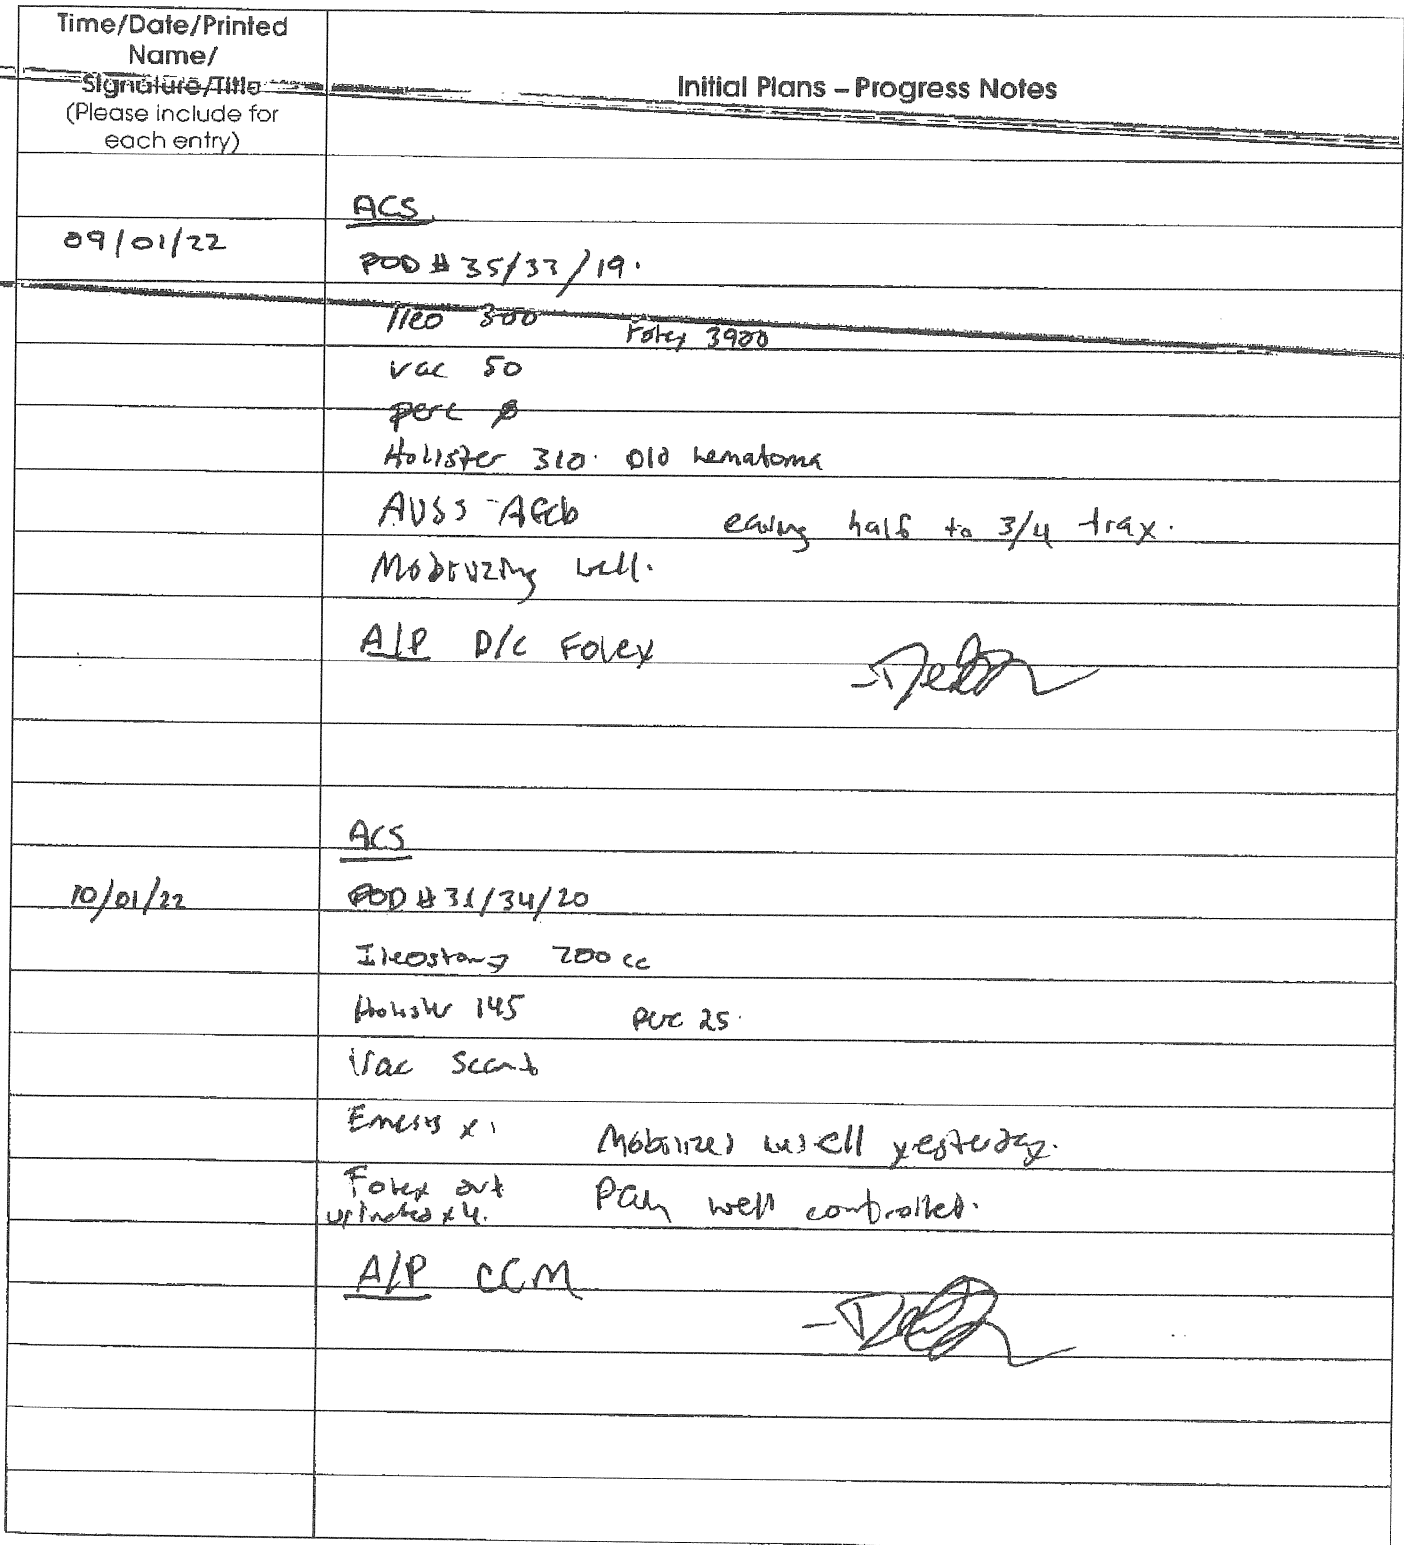 Time/Date/Printed
Name/
Signature/Title
(Please include for
each entry)
Initial Plans – Progress Notes
ACS
09/01/22
POD # 35/33/19.
Ileo 300 Foley 3900
vac 50
perc ø
Hollister 310. Old hematoma
AVSS - Afeb eating half to 3/4 trax.
Mobilizing well.
A/P D/C Foley
ACS
10/01/22
POD # 31/34/20
Ileostomy 200 cc
Hollister 145 perc 25.
Vac scant
Emesis x 1 Mobilized well yesterday.
Foley out Pain well controlled.
urinated x 4.
A/P CCM